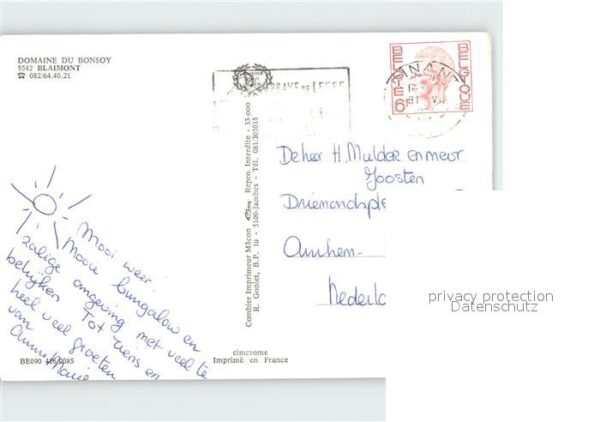 DOMAINE DU BONSOY
5542 BLAIMONT
☎ 082/64.40.21
BELGIE 6
BELGIQUE
DINANT
De her H. Mulder en meur
Joosten
Driemondsple
Arnhem-
Nederla
Mooi weer.
Mooie bungalow en
zalige omgeving met veel te
bekijken Tot ziens en
heel veel groeten
van
Anne Marie
Combier Imprimeur Mâcon Repro. Interdite - 33-000
R. Goniet, B.P. 10 - 5100-Jambes - Tél. 081/303015
cimcrome
Imprimé en France
BE090 426 0085
privacy protection
Datenschutz